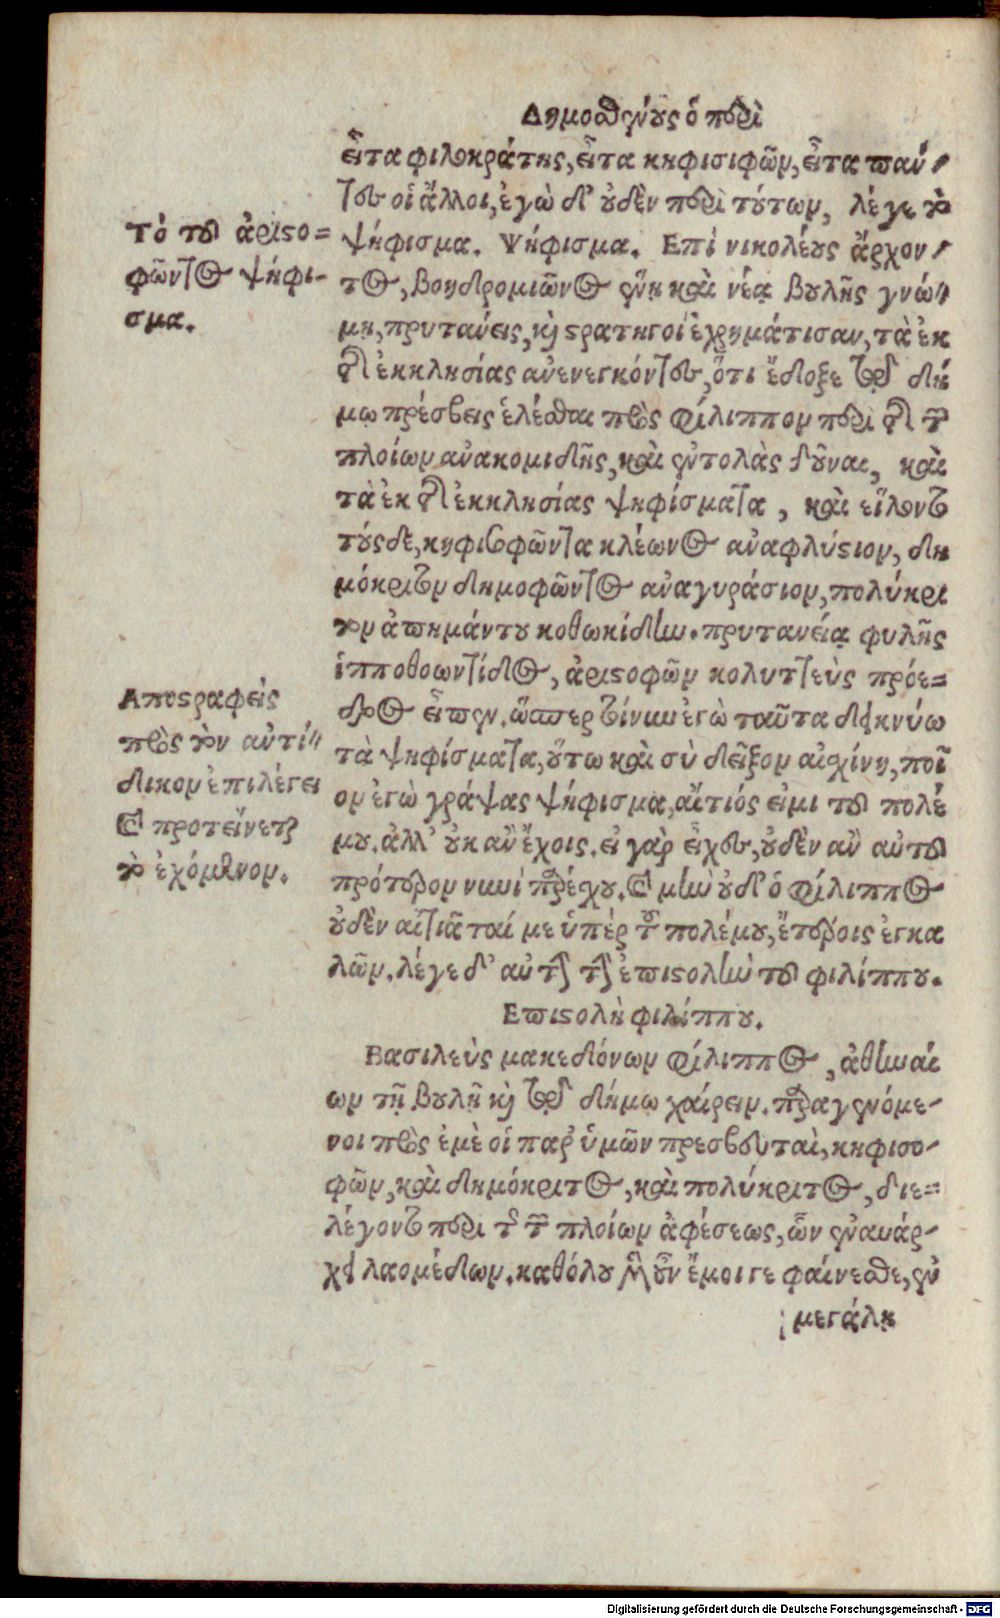 Δημοσθένους ὁ περὶ
εἶτα φιλοκράτης, εἶτα κηφισιφῶν, εἶτα παν-
τες οἱ ἄλλοι, ἐγὼ δ' οὐδὲν περὶ τούτων, λέγε τὸ
Τὸ τοῦ ἀριστο=
φῶντος ψήφι-
σμα.
ψήφισμα. Ψήφισμα. Επὶ νικολέους ἄρχον-
τος, βοηδρομιῶνος ἕνῃ καὶ νέᾳ βουλῆς γνώ-
μη, πρυτάνεις, καὶ στρατηγοὶ ἐχρημάτισαν, τὰ ἐκ
τῆς ἐκκλησίας ἀνενεγκόντες, ὅτι ἔδοξε τῷ δή
μῳ πρέσβεις ἑλέσθαι πρὸς φίλιππον περὶ τῆς τῶν
πλοίων ἀνακομιδῆς, καὶ ἐντολὰς δοῦναι, καὶ
τὰ ἐκ τῆς ἐκκλησίας ψηφίσματα, καὶ εἵλοντο
τούσδε, κηφισοφῶντα κλέωνος ἀναφλύστιον, δη
μόκριτον δημοφῶντος ἀναγυράσιον, πολύκρι
τον ἀπημάντου κοθωκίδην. πρυτανείᾳ φυλῆς
ἱπποθοωντίδος, ἀριστοφῶν κολυττεὺς πρόε=
δρος εἶπεν. ὥσπερ τοίνυν ἐγὼ ταῦτα δεικνύω
τὰ ψηφίσματα, οὕτω καὶ σὺ δεῖξον αἰσχίνη, ποῖ
ον ἐγὼ γράψας ψήφισμα, αἴτιός εἰμι τοῦ πολέ
μου. ἀλλ' οὐκ ἂν ἔχοις. εἰ γὰρ εἶχες, οὐδὲν ἂν αὐτοῦ
πρότερον νυνὶ παρέσχου. καὶ μὴν οὐδ' ὁ φίλιππος
οὐδὲν αἰτιᾶταί με ὑπὲρ τοῦ πολέμου, ἑτέροις ἐγκα
λῶν. λέγε δ' αὐτὴν τὴν ἐπιστολὴν τοῦ φιλίππου.
Αποστραφεὶς
πρὸς τὸν ἀντί-
δικον ἐπιλέγει
καὶ προτείνεται
τὸ ἐχόμενον.
Επιστολὴ φιλίππου.
Βασιλεὺς μακεδόνων φίλιππος, ἀθηναί
ων τῇ βουλῇ καὶ τῷ δήμῳ χαίρειν. παραγενόμε-
νοι πρὸς ἐμὲ οἱ παρ' ὑμῶν πρεσβευταὶ, κηφισο-
φῶν, καὶ δημόκριτος, καὶ πολύκριτος, διε=
λέγοντο περὶ τῆς τῶν πλοίων ἀφέσεως, ὧν ἐναυάρ-
χει λαομέδων. καθόλου μὲν οὖν ἔμοιγε φαίνεσθε, ἐν
μεγάλῃ
Digitalisierung gefördert durch die Deutsche Forschungsgemeinschaft - DFG